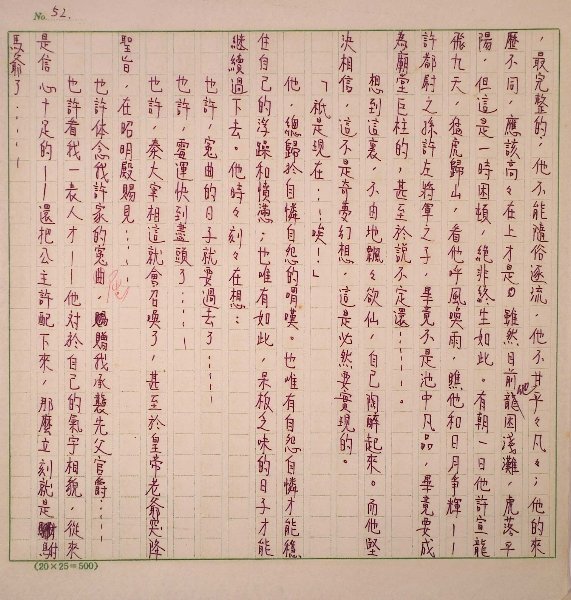 No. 52.
，最完整的，他不能隨俗逐流，他不甘平々凡々；他的來
歷不同，應該高々在上才是。雖然目前龍困淺灘，虎落平
陽，但這是一時困頓，絕非終生如此。有朝一日他許宣龍
飛九天，猛虎歸山，看他呼風喚雨，瞧他和日月爭輝——
許都尉之孫許左將軍之子，畢竟不是池中凡品，畢竟要成
為廟堂巨柱的，甚至於說不定還……。
想到這裏，不由地飄々欲仙，自己陶醉起來。而他堅
決相信，這不是奇夢幻想，這是必然要實現的。
「祇是現在……唉！」
他，總歸於自憐自怨的嘆。也唯有自怨自憐才能穩
住自己的浮躁和憤懣；也唯有如此，呆板乏味的日子才能
繼續過下去。他時々刻々在想：
也許，冤曲的日子就要過去了……
也許，霉運快到盡頭了……
也許，秦大宰相這就會召喚了，甚至於皇帝老爺突降
聖旨，在昭明殿賜見……
也許体念我許家的冤曲，賜我承襲先父官爵……
也許看我一表人才——他對於自己的氣宇相貌，從來
是信心十足的——還把公主許配下來，那麼立刻就是駙
馬爺了……
(20×25=500)